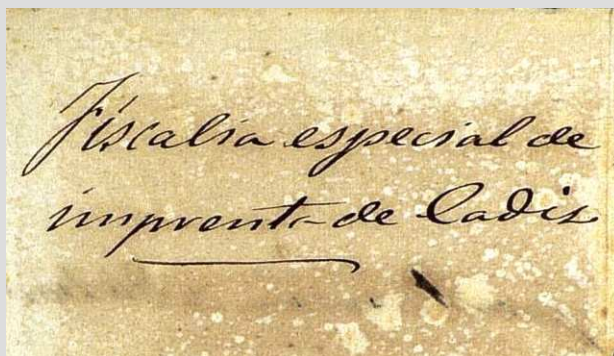 Fiscalia especial de
imprenta de Cadiz